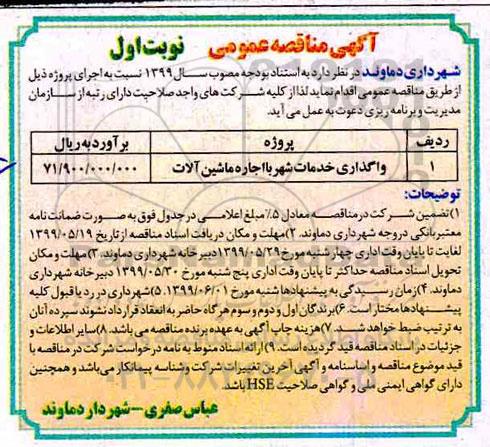 آگهی مناقصه عمومی نوبت اول
شهرداری دماوند در نظر دارد به استناد بودجه مصوب سال ۱۳۹۹ نسبت به اجرای پروژه ذیل
از طریق مناقصه عمومی اقدام نماید لذا از کلیه شرکت های واجد صلاحیت دارای رتبه از سازمان
مدیریت و برنامه ریزی دعوت به عمل می آید.
ردیف پروژه برآورد به ریال
۱ واگذاری خدمات شهر با اجاره ماشین آلات ۷۱/۹۰۰/۰۰۰/۰۰۰
توضیحات:
۱)تضمین شرکت در مناقصه معادل ۵٪ مبلغ اعلامی در جدول فوق به صورت ضمانت نامه
معتبر بانکی در وجه شهرداری دماوند. ۲)مهلت و مکان دریافت اسناد مناقصه از تاریخ ۱۳۹۹/۰۵/۱۹
لغایت تا پایان وقت اداری چهار شنبه مورخ ۱۳۹۹/۰۵/۲۹ دبیرخانه شهرداری دماوند. ۳)مهلت و مکان
تحویل اسناد مناقصه حداکثر تا پایان وقت اداری پنج شنبه مورخ ۱۳۹۹/۰۵/۳۰ دبیرخانه شهرداری
دماوند. ۴)زمان رسیدگی به پیشنهادها شنبه مورخ ۱۳۹۹/۰۶/۰۱. ۵)شهرداری در رد یا قبول کلیه
پیشنهادها مختار است. ۶)برندگان اول و دوم و سوم هرگاه حاضر به انعقاد قرارداد نشوند سپرده آنان
به ترتیب ضبط خواهد شد. ۷)هزینه چاپ آگهی به عهده برنده مناقصه می باشد. ۸)سایر اطلاعات و
جزئیات در اسناد مناقصه قید گردیده است. ۹)ارائه اسناد منوط به نامه درخواست شرکت در مناقصه با
قید موضوع مناقصه و اساسنامه و آگهی آخرین تغییرات شرکت و شناسه پیمانکار می باشد و همچنین
دارای گواهی ایمنی ملی و گواهی صلاحیت HSE باشد
عباس صفری - شهردار دماوند